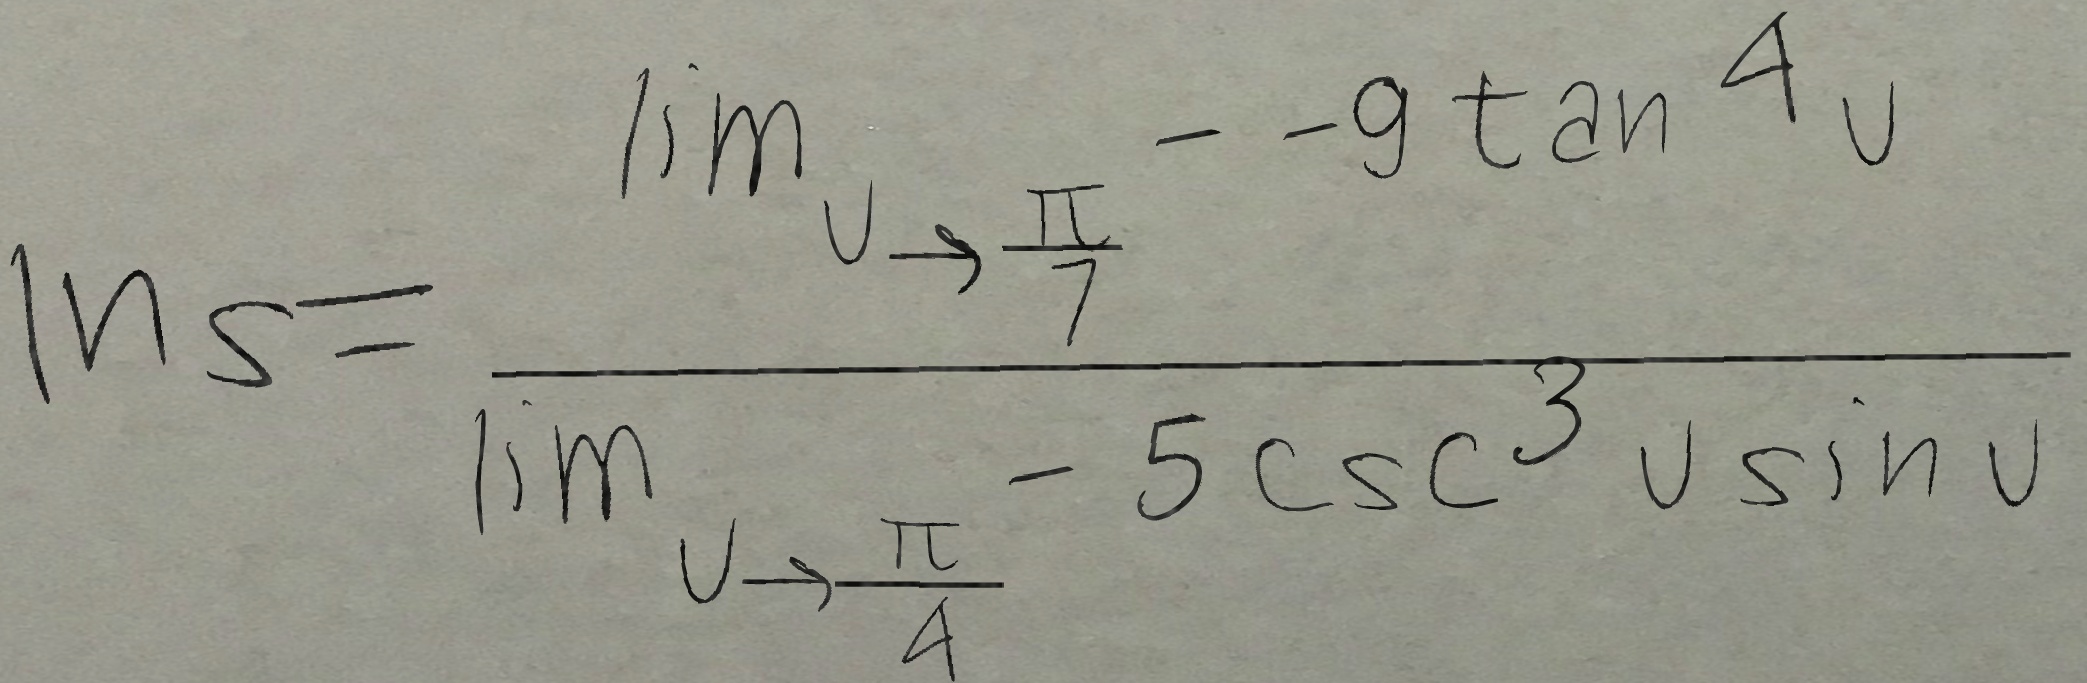 ln s = \frac{\lim_{v \to \frac{\pi}{7}} - -9 \tan^4 v}{\lim_{v \to \frac{\pi}{4}} -5 \csc^3 v \sin v}